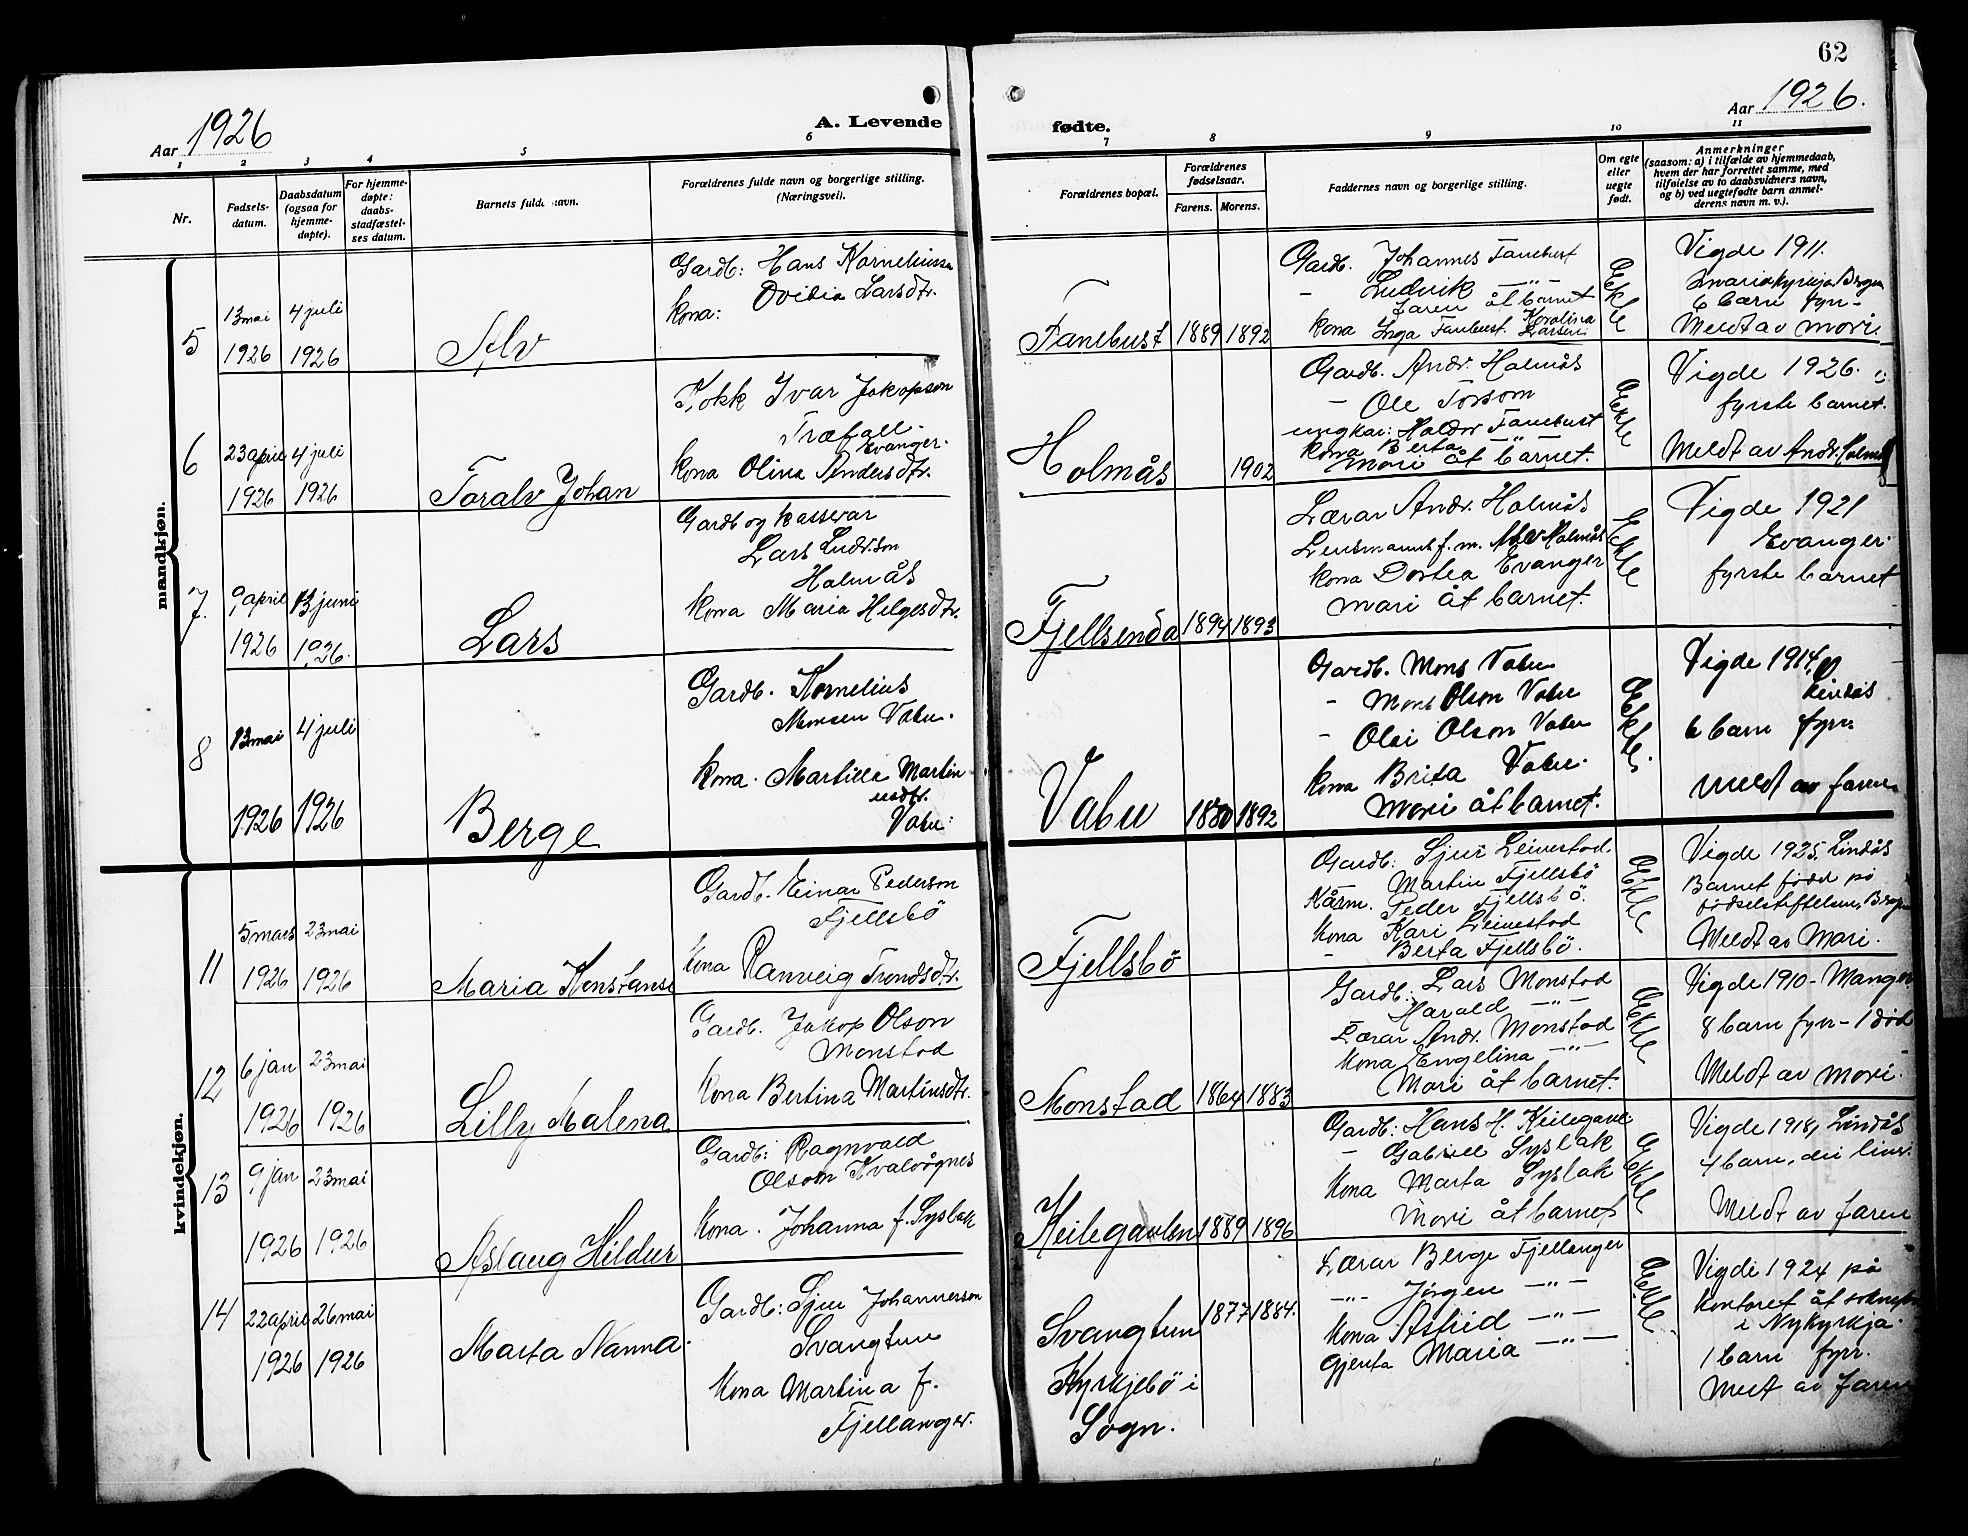 62
Aar 1926
A. Levende
fødte.
Aar 1926.
1 2 3 4 5 6 7 8 9 10 11
Nr.
Fødsels-
datum.
Daabsdatum
(ogsaa for
hjemme-
døpte).
For hjemme-
døpte:
daabs-
stadfæstel-
ses datum.
Barnets fulde navn.
Forældrenes fulde navn og borgerlige stilling.
(Næringsvei).
Forældrenes bopæl.
Forældrenes
fødselsaar.
Farens. Morens.
Faddernes navn og borgerlige stilling.
Om egte
eller
uegte
født.
Anmerkninger
(saasom: a) i tilfælde av hjemmedaab,
hvem der har forrettet samme, med
tilføielse av to daabsvidners navn,
og b) ved uegtefødte barn anmel-
derens navn m. v.).
mandkjøn.
5
13 mai
1926
4 juli
1926
Alv
Gardb: Hans Korneliussn
Kona: Ovidia Larsdtr.
Fanebust 1889 1892
Gardb. Johannes Fanebust
- Ludvik -"-
Faren åt barnet
Kona Inga Fanebust. Karolina Larsen
Ekte
Vigde 1911.
Mariakyrkja Bergen
6 barn fyrr-
Meldt av mori
6
23 april
1926
4 juli
1926
Toralv Johan
Kokk Ivar Jakopson
Træfall-
Evanger.
Kona Olina Andersdtr.
Holmås 1902
Gardb. Andr. Holmås
- Ole Torsom
ungkar: Haldor Fanebust
Kona Berta -"-
Mori åt barnet.
Ekte
Vigde 1926.
fyrste barnet.
Meldt av Andr. Holmås
7.
9 april
1926
13 juni
1926.
Lars
Gardb og kasserar
Lars Andr.son
Holmås
Kona Maria Helgesdtr.
Fjellsenda 1894 1893
Lærar Andr. Holmås
Lensmannsf.m. Alv Holmås
Kona Dortea Evanger
Mari åt barnet.
Ekte
Vigde 1921
Evanger.
fyrste barnet
8
13 mai
1926
4 juli
1926
Berge
Gardb. Kornelius
Monsen Vabu.
Kona. Martilla Martin
usdtr.
Vabu.
Vabu 1880 1892
Gardb. Mons Vabu
- Mons Olson Vabu
- Olai Olson Vabu
Kona Brita Vabu.
Mori åt barnet.
Ekte.
Vigde 1914,
Lindås
6 barn fyrr.
Meldt av faren
kvindekjøn.
11
5 mars
1926
23 mai
1926
Maria Konstanse
Gardb. Einar Pederson
Fjellsbö
Kona Ranveig Trondsdtr.
Fjellsbö
Gardb: Sjur Leivestad.
Martin Fjellsbö
Kårm. Peder Fjellsbö.
Kona Kari Leivestad
- Berta Fjellsbö.
Ekte
Vigde 1925, Lindås
Barnet född på
födselstiftelsen, Bergen
Meldt av Mari.
12
6 jan
1926
23 mai
1926
Lilly Malena
Gardb. Jakop Olson
Monstad
Kona Bertina Martinsdtr.
Monstad 1864 1883
Gardb: Lars Monstad
Harald -"-
Lærar Andr. Monstad
Kona Engelina -"-
Mari åt barnet.
Ekte
Vigde 1910 - Manger.
8 barn fyrr - 1 död
Meldt av mori.
13
9 jan
1926
23 mai
1926
Aslaug Hildur
Gardb: Ragnvald
Olsom Kvalvågnes
Kona. Johanna f. Syslak
Keilegavlen 1889 1896
Gardb: Hans H. Keilegavle
- Gabriell Syslak
Kona Marta Syslak
Mori åt barnet
Ekte
Vigde 1918, Lindås
4 barn, dei liver.
Meldt av faren
14
22 april
1926
26 mai
1926
Marta Nanna.
Gardb: Sjur Johannesson
Svangtun
Kona Martina f.
Fjellanger.
Svangtun
Kyrkjebö i
Sogn.
1877 1884.
Lærar Berge Fjellanger
-"- Jörgen -"-
Kona Astrid -"-
Gjenta Maria -"-
Ekte.
Vigde 1924 på
kontoret åt soknepr.
i Nykyrkja.
1 barn fyrr.
Melt av faren